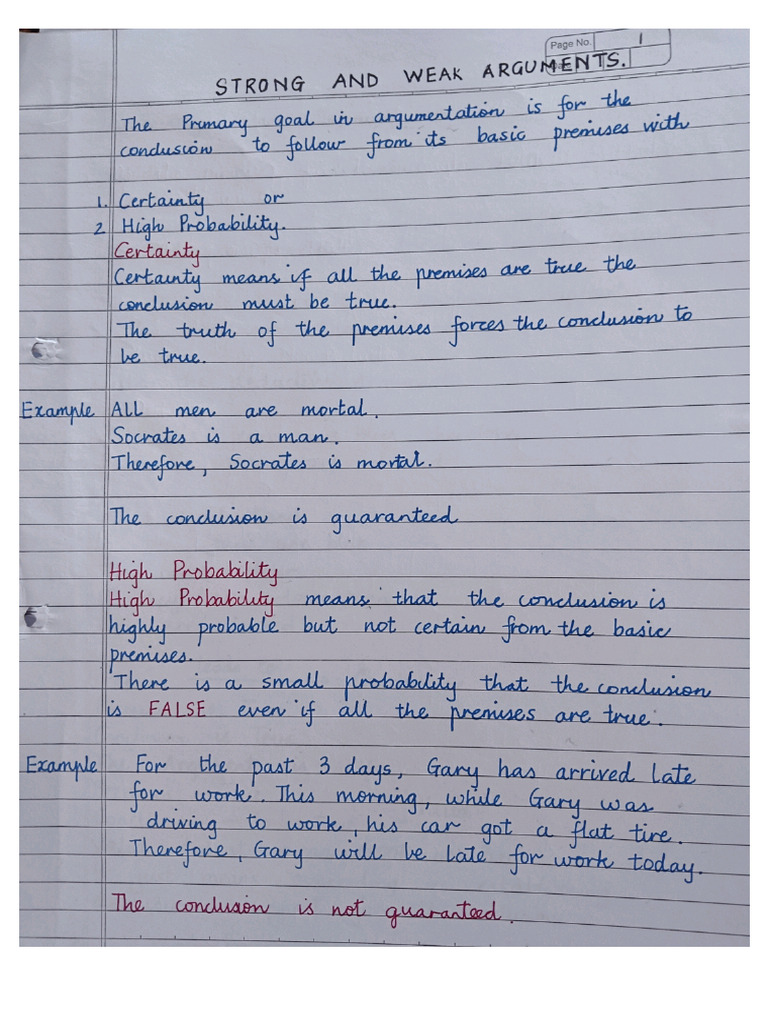 Page No. 1
STRONG AND WEAK ARGUMENTS.
The Primary goal in argumentation is for the
conclusion to follow from its basic premises with
1. Certainty or
2 High Probability.
Certainty
Certainty means if all the premises are true the
conclusion must be true.
The truth of the premises forces the conclusion to
be true.
Example ALL men are mortal.
Socrates is a man.
Therefore, Socrates is mortal.
The conclusion is guaranteed
High Probability
High Probability means that the conclusion is
highly probable but not certain from the basic
premises.
There is a small probability that the conclusion
is FALSE even if all the premises are true.
Example For the past 3 days, Gary has arrived late
for work. This morning, while Gary was
driving to work, his car got a flat tire.
Therefore, Gary will be late for work today.
The conclusion is not guaranteed.